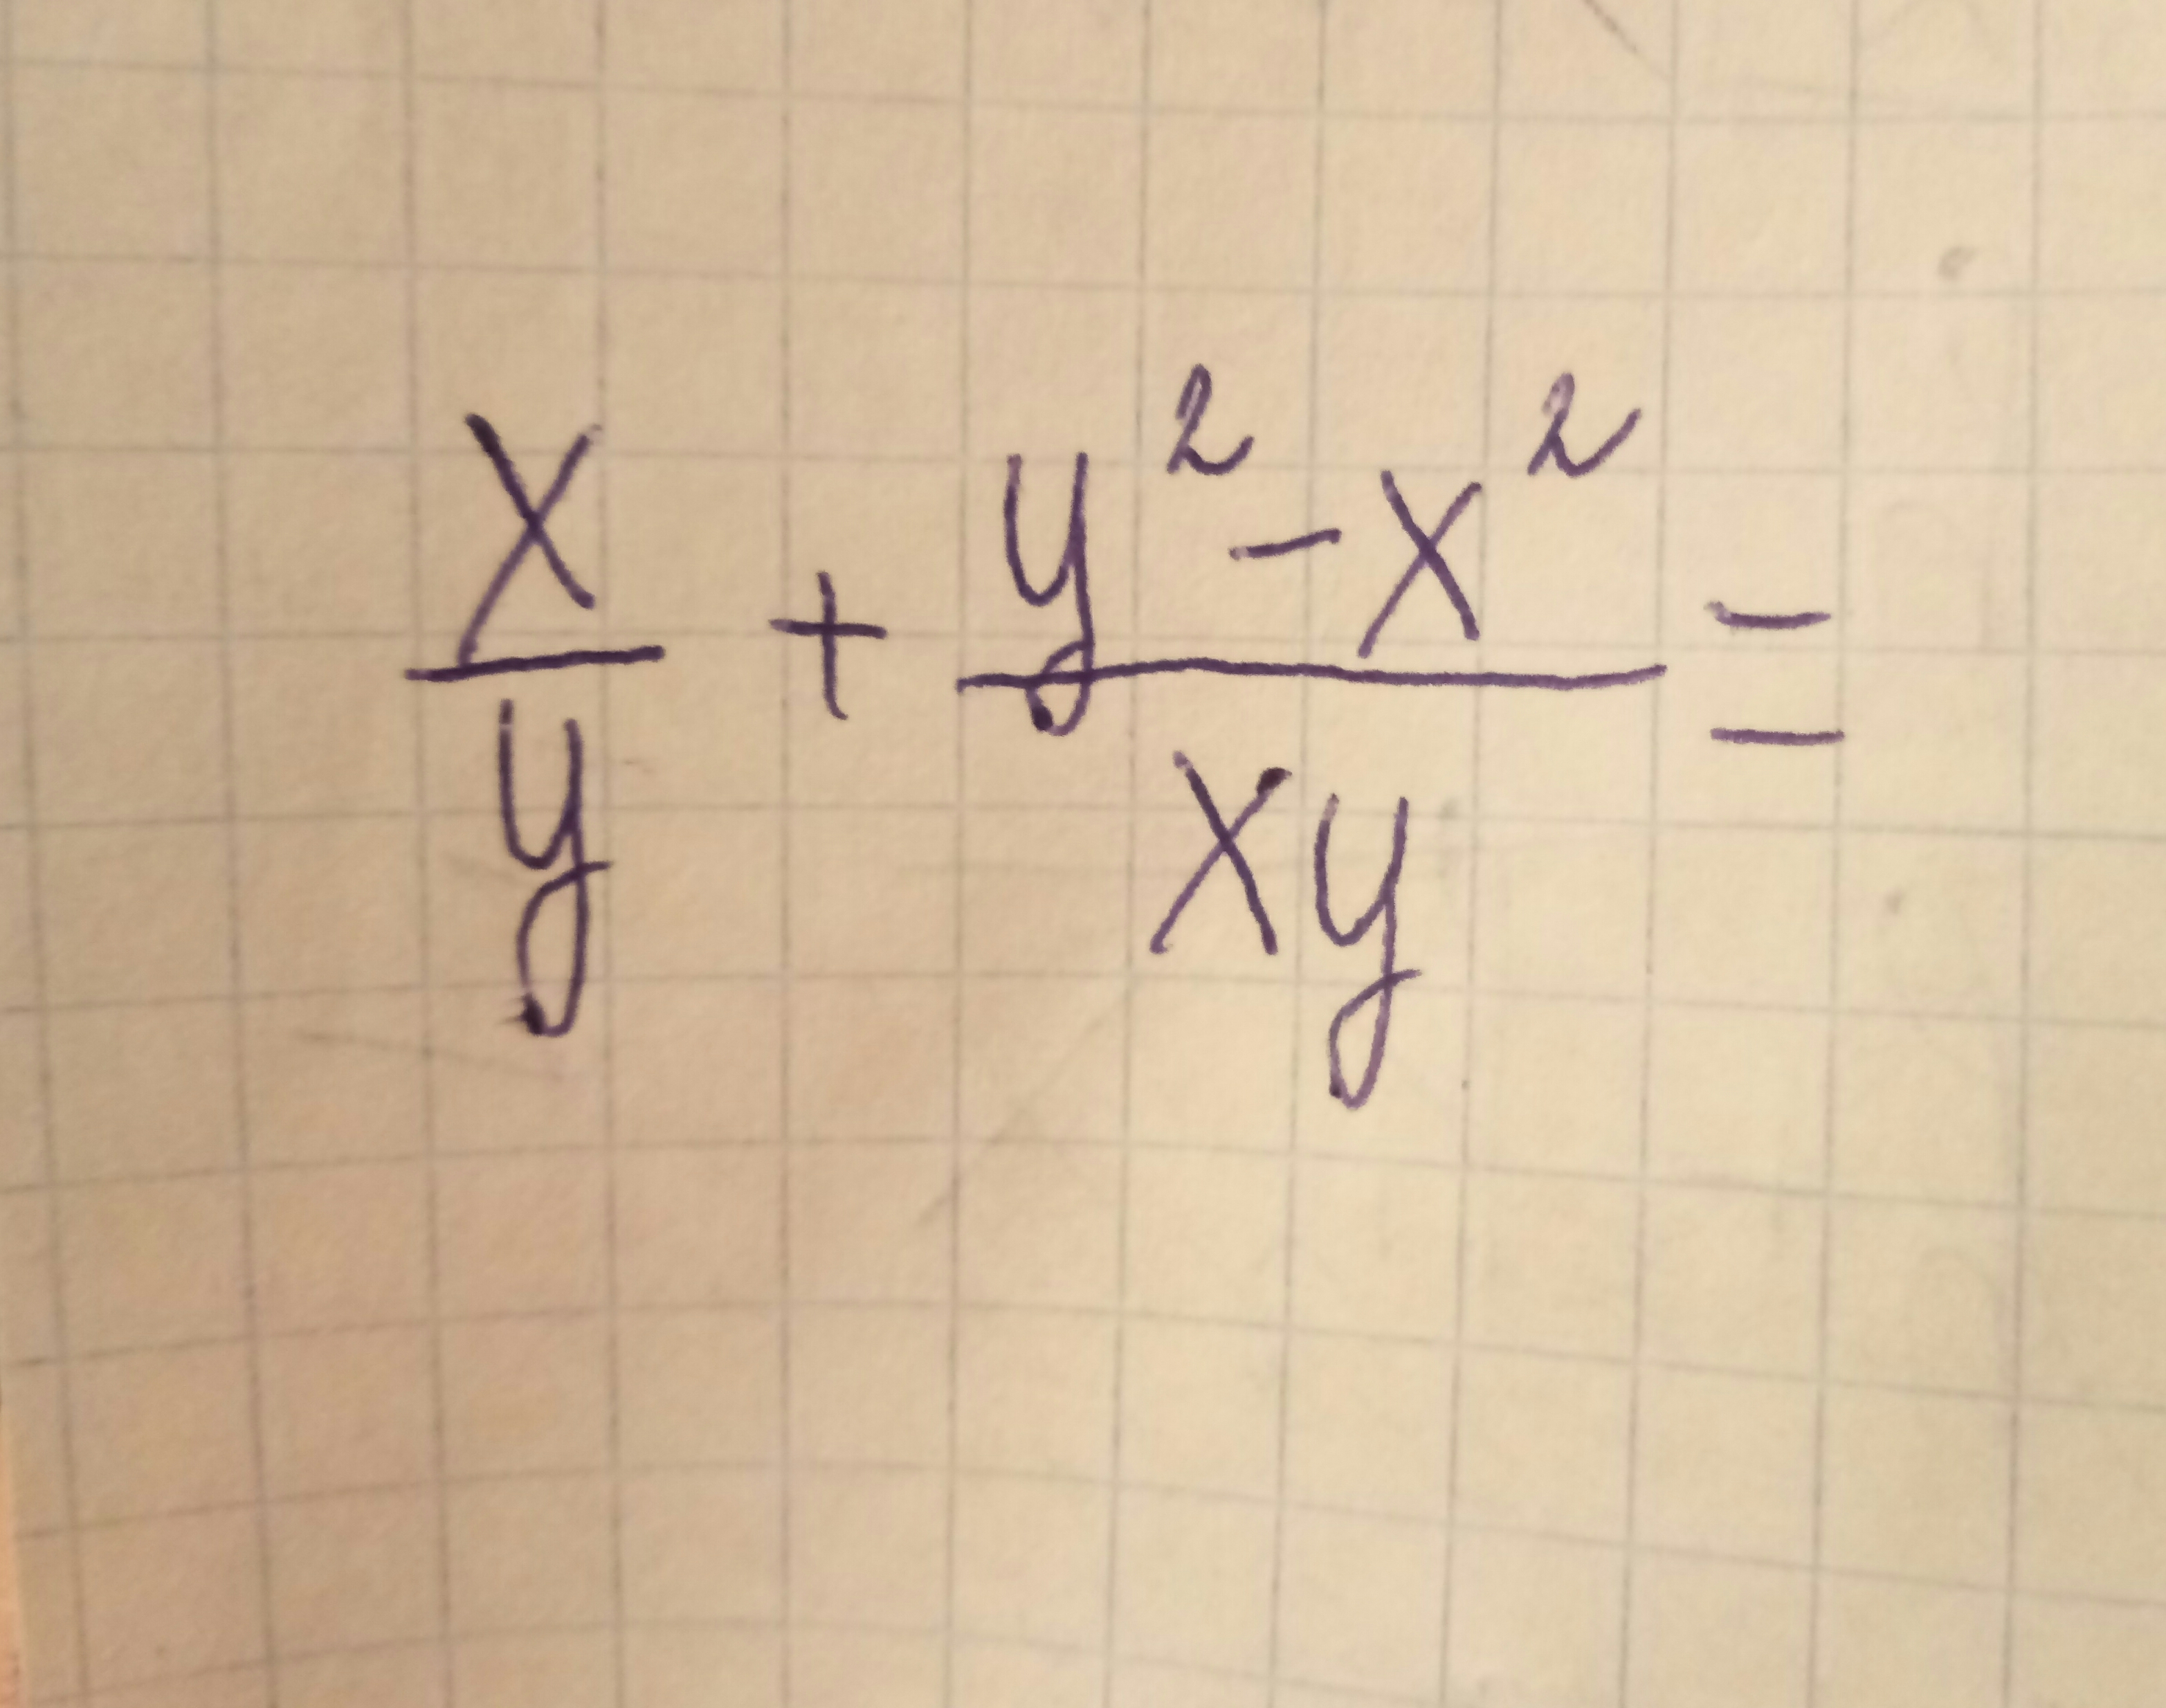 x/y + (y² - x²)/(xy) =